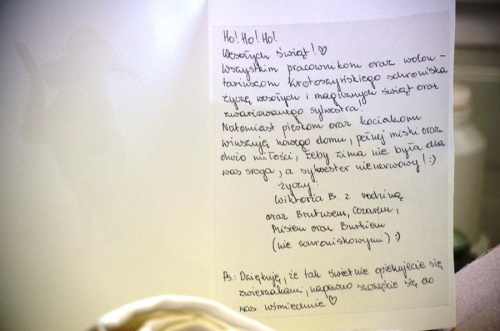 Ho! Ho! Ho!
Wesołych Świąt! ♡
Wszystkim pracownikom oraz wolon-
tariuszom krotoszyńskiego schroniska
życzę wesołych i magicznych świąt oraz
zwariowanego sylwestra!
Natomiast pieskom oraz kociakom
winszuję nowego domu, pełnej miski oraz
dużo miłości, żeby zima nie była dla
was sroga, a sylwester nienerwowy! :)
życzy:
Wiktoria B. z rodziną
oraz Brutusem, Cezarem,
Misiem oraz Burkiem
(nie schroniskowymi) :)
Ps.: Dziękuję, że tak świetnie opiekujecie się
zwierzakami, naprawdę szczęście się do
was uśmiechnie ♡